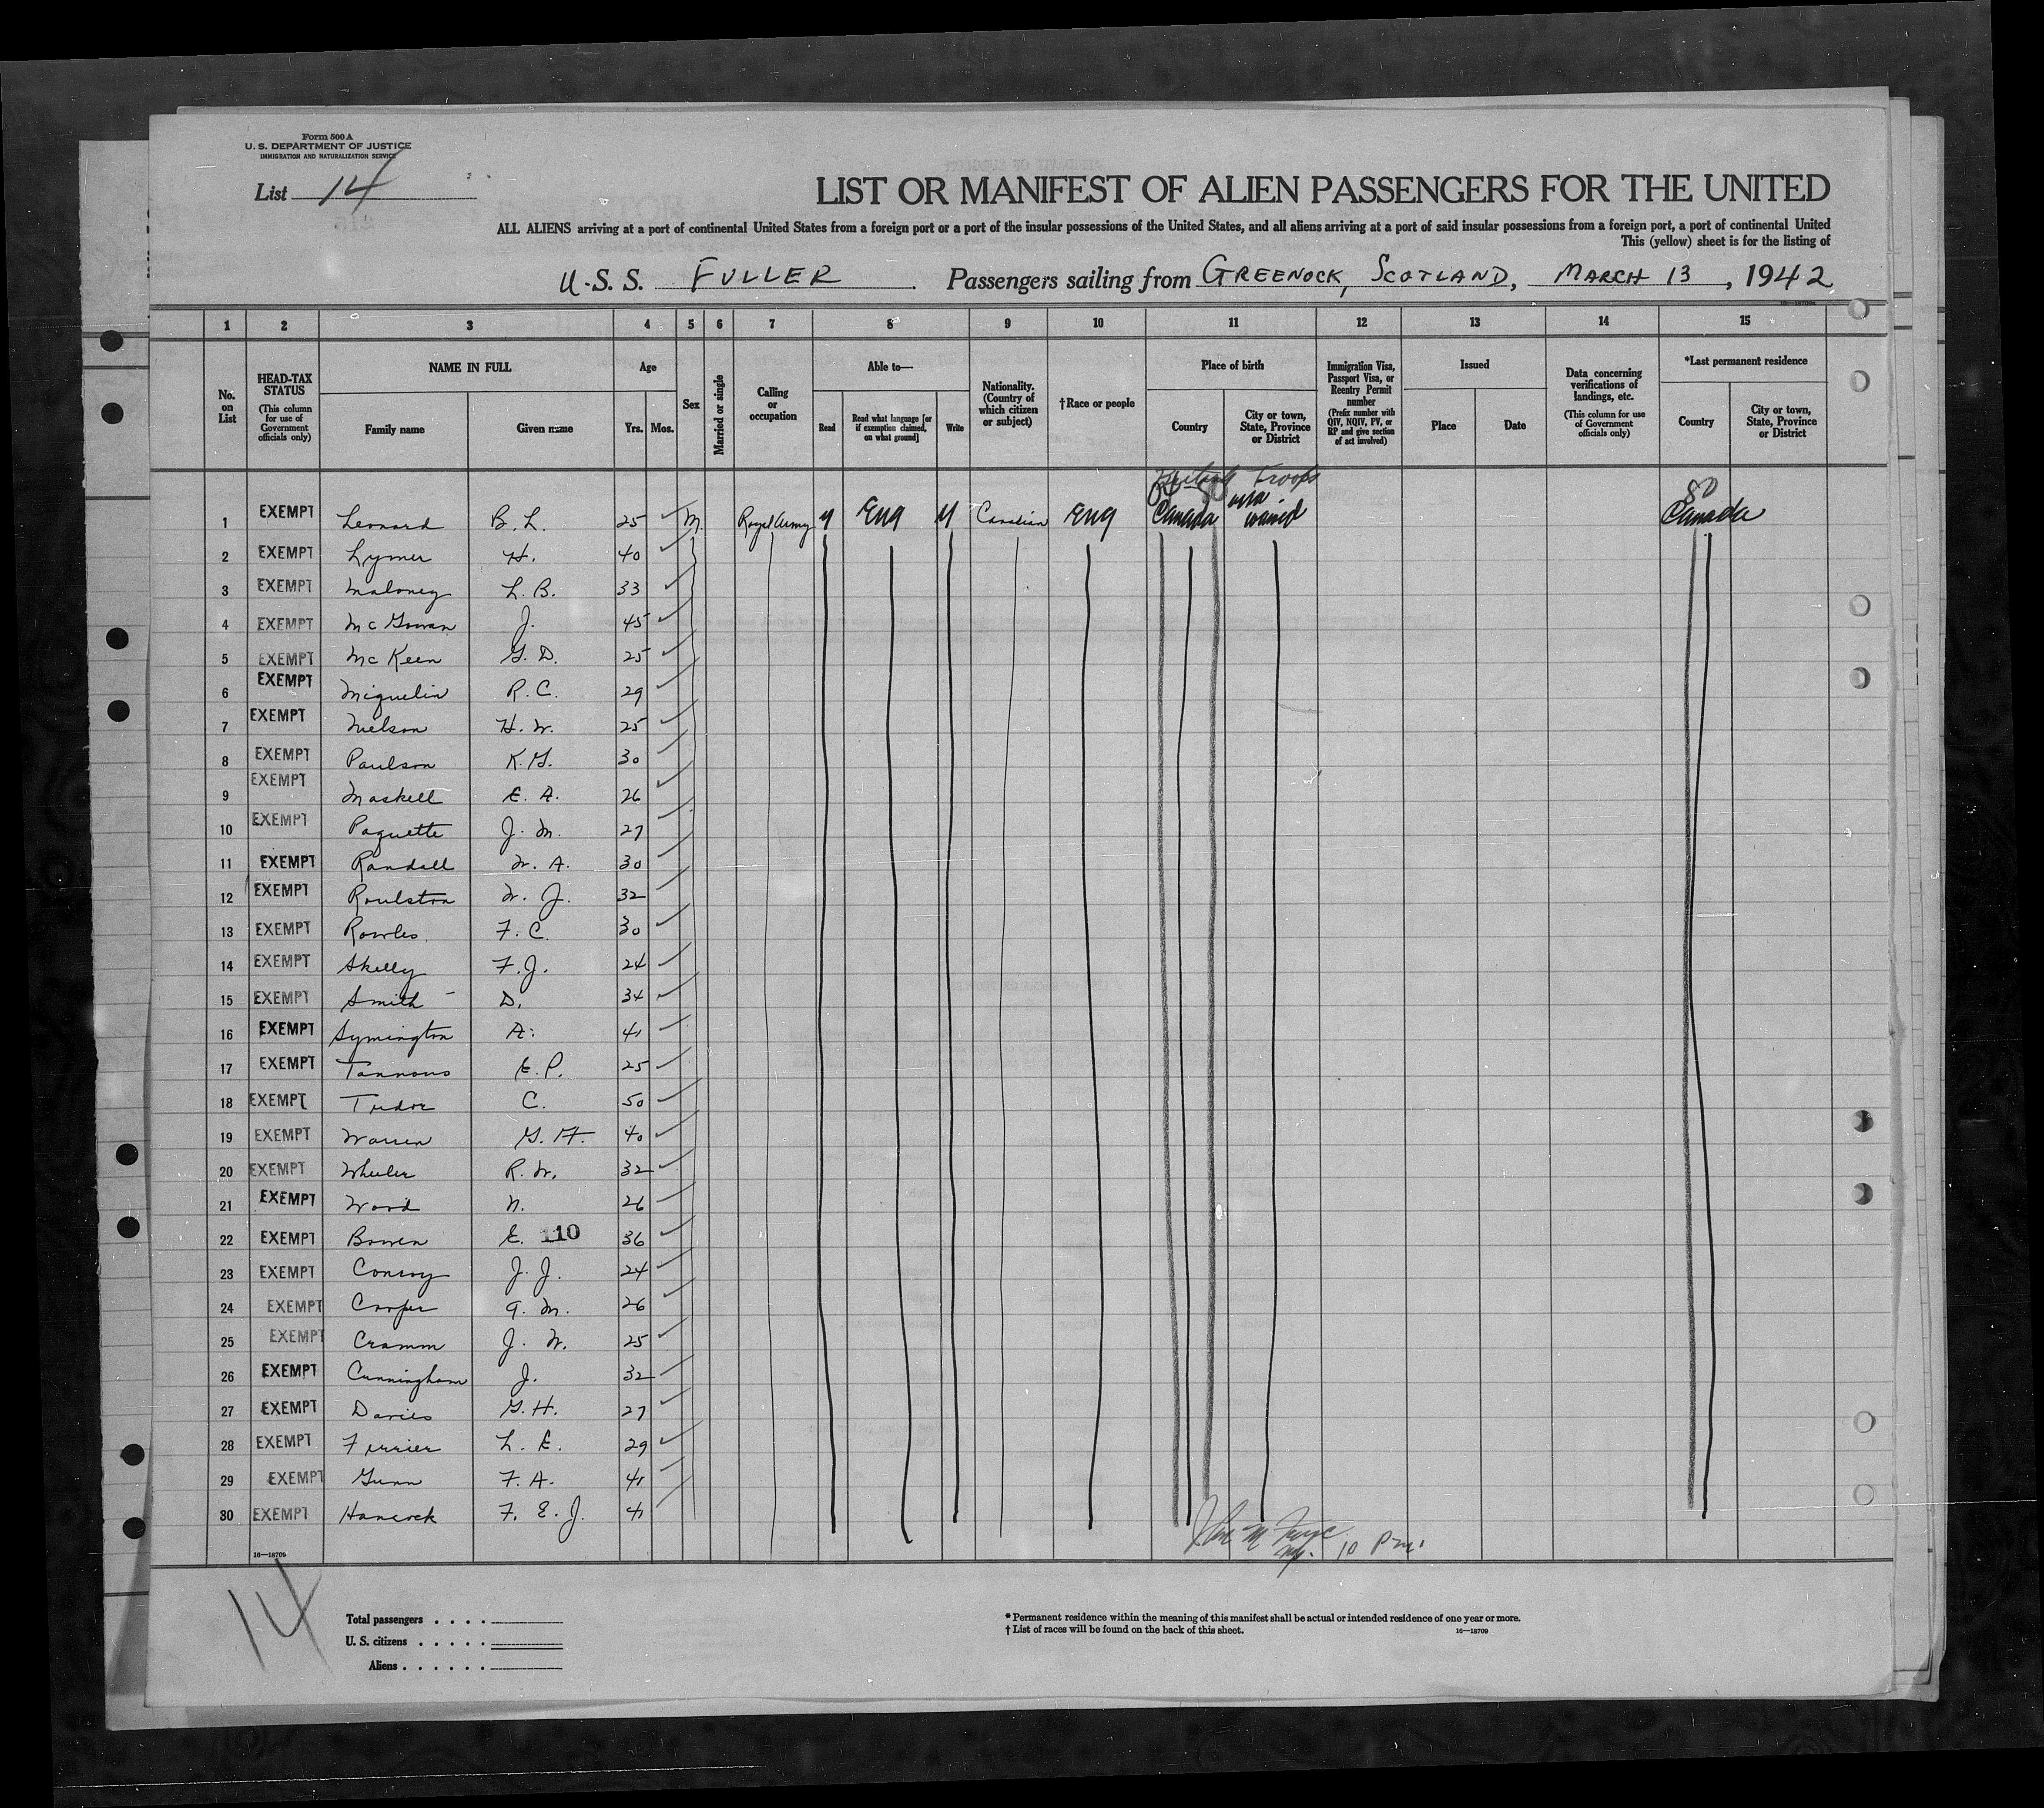 Form 500 A
U. S. DEPARTMENT OF JUSTICE
IMMIGRATION AND NATURALIZATION SERVICE
List 14
LIST OR MANIFEST OF ALIEN PASSENGERS FOR THE UNITED
ALL ALIENS arriving at a port of continental United States from a foreign port or a port of the insular possessions of the United States, and all aliens arriving at a port of said insular possessions from a foreign port, a port of continental United
This (yellow) sheet is for the listing of
U.S.S. FULLER Passengers sailing from GREENOCK, SCOTLAND, MARCH 13, 1942
1 2 3 4 5 6 7 8 9 10 11 12 13 14 15
No. on List
HEAD-TAX STATUS (This column for use of Government officials only)
NAME IN FULL
Family name Given name
Age
Yrs. Mos.
Sex
Married or single
Calling or occupation
Able to—
Read
Read what language [or if exemption claimed, on what ground]
Write
Nationality. (Country of which citizen or subject)
†Race or people
Place of birth
Country
City or town, State, Province or District
Immigration Visa, Passport Visa, or Reentry Permit number (Prefix number with QIV, NQIV, PV, or RP and give section of act involved)
Issued
Place Date
Data concerning verifications of landings, etc. (This column for use of Government officials only)
*Last permanent residence
Country
City or town, State, Province or District
British Troops
80 visa 80
1 EXEMPT Leonard B. L. 25 M. Royal Army y Eng y Canadian Eng Canada waived Canada
2 EXEMPT Lymer H. 40
3 EXEMPT Maloney L. B. 33
4 EXEMPT McGowan J. 45
5 EXEMPT McKeen G. D. 25
6 EXEMPT Miquelin R. C. 29
7 EXEMPT Nelson H. W. 25
8 EXEMPT Paulson K. G. 30
9 EXEMPT Maskell E. A. 26
10 EXEMPT Paquette J. M. 27
11 EXEMPT Randall W. A. 30
12 EXEMPT Roulston W. J. 32
13 EXEMPT Rowles F. C. 30
14 EXEMPT Skelly F. J. 24
15 EXEMPT Smith D. 34
16 EXEMPT Symington A. 41
17 EXEMPT Tannous E. P. 25
18 EXEMPT Tudor C. 50
19 EXEMPT Warren G. H. 40
20 EXEMPT Wheeler R. W. 32
21 EXEMPT Wood N. 26
22 EXEMPT Bowen E. 110 36
23 EXEMPT Conroy J. J. 24
24 EXEMPT Cooper G. M. 26
25 EXEMPT Cramm J. W. 25
26 EXEMPT Cunningham J. 32
27 EXEMPT Davies G. H. 27
28 EXEMPT Ferrier L. E. 29
29 EXEMPT Gunn F. A. 41
30 EXEMPT Hancock F. E. J. 41
10 Pm.
16—18709
14
Total passengers
U. S. citizens
Aliens
* Permanent residence within the meaning of this manifest shall be actual or intended residence of one year or more.
† List of races will be found on the back of this sheet.
16—18709